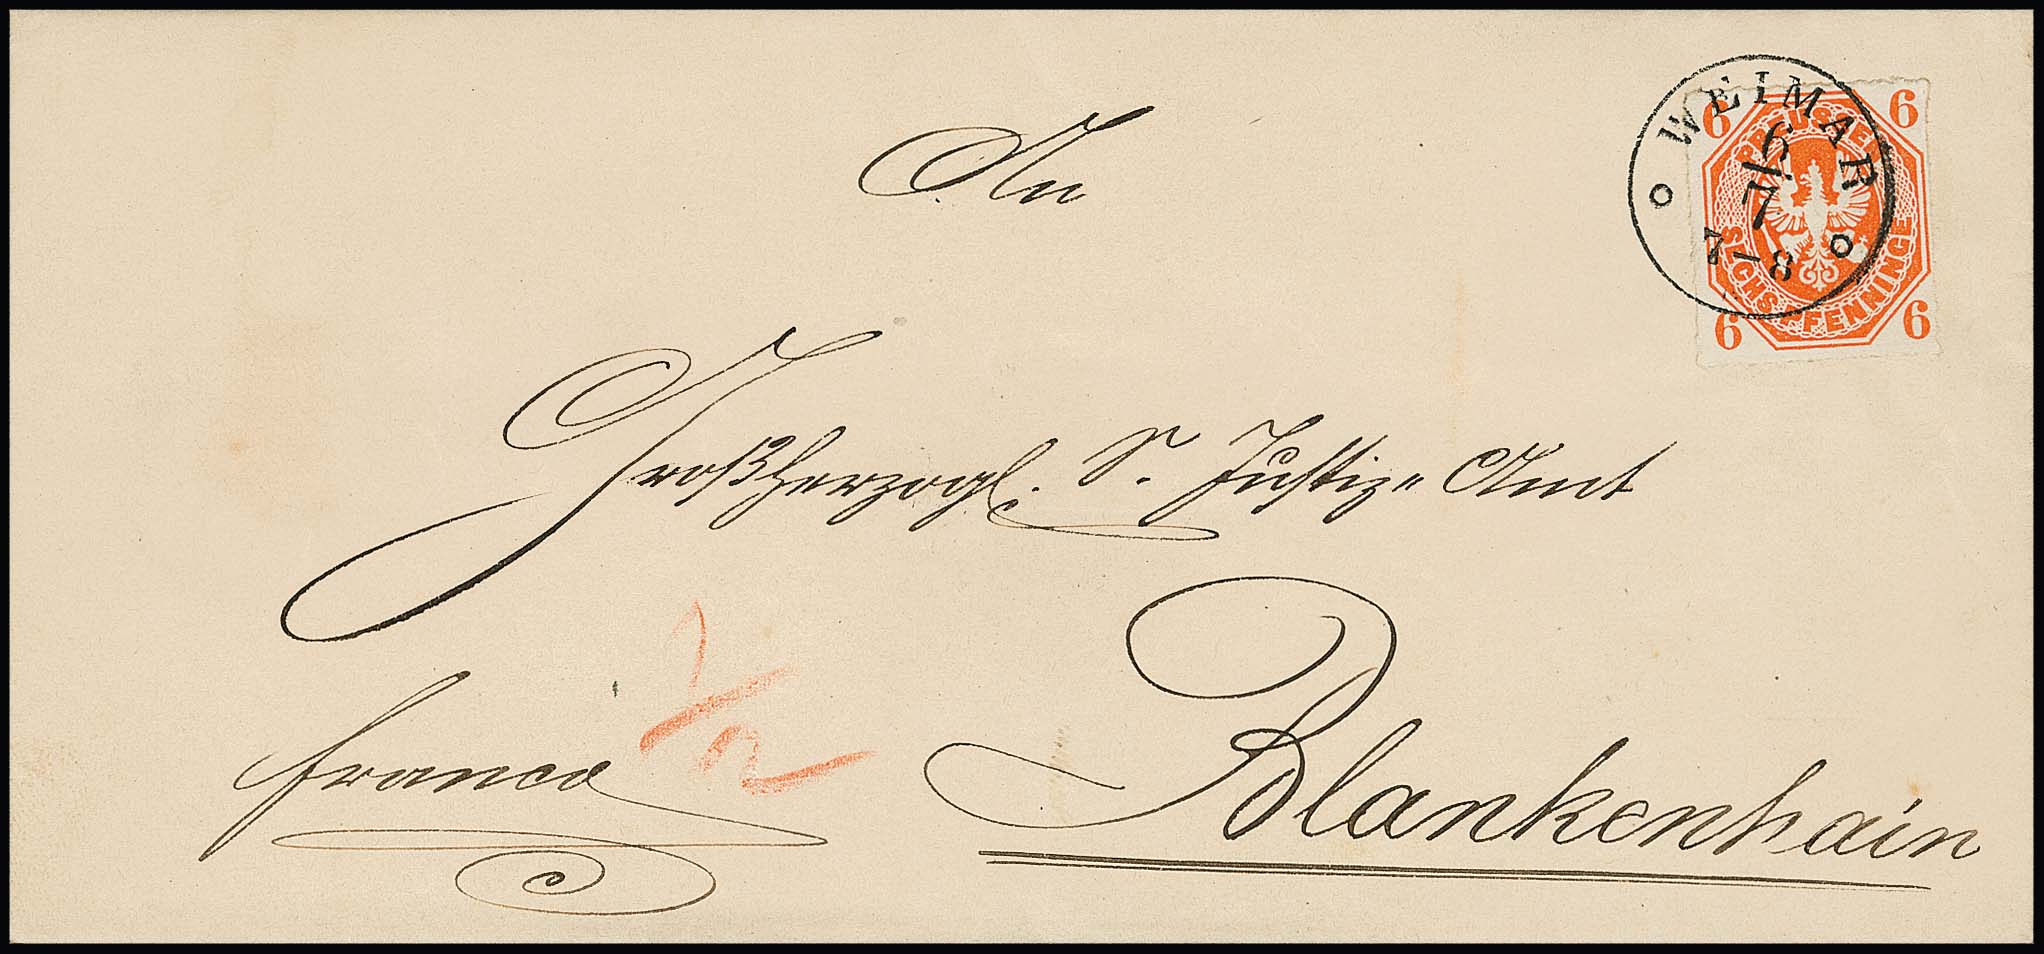 WEIMAR
6
7
7-8
6 6
PREUSSEN
SECHS PFENNINGE
6 6
An
Großherzogl. S. Justiz= Amt
franco
1/2
Blankenhain